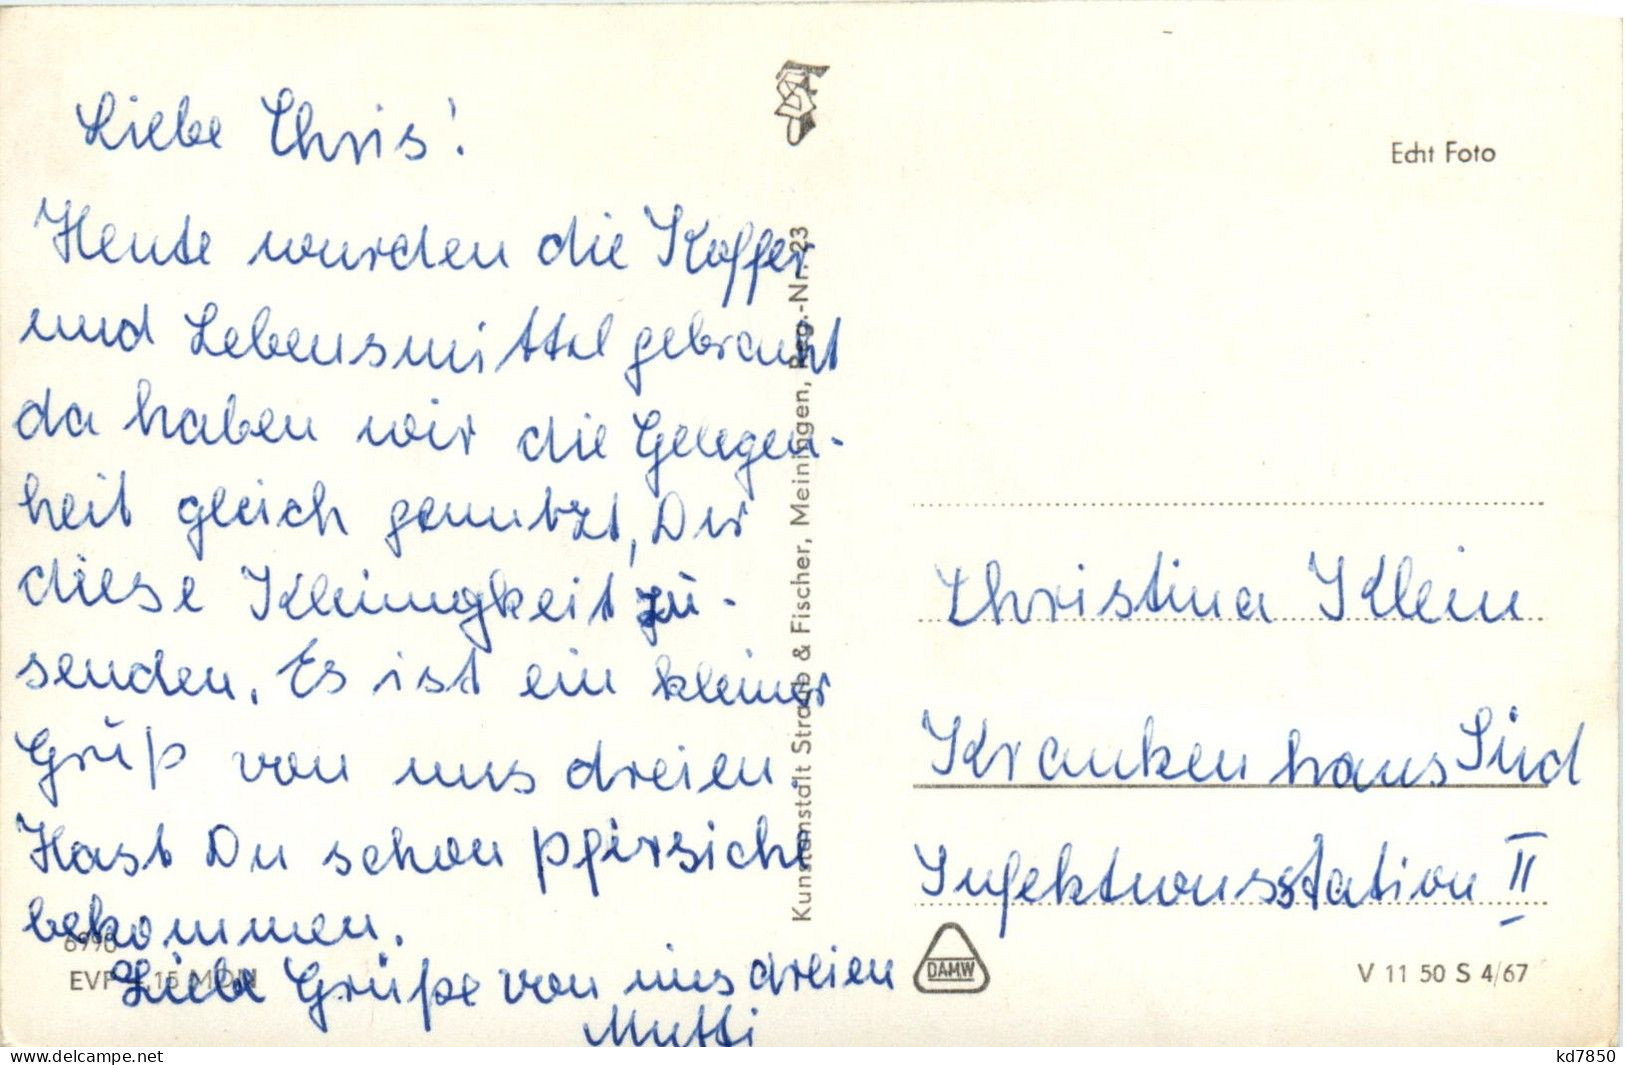 Liebe Chris!
Heute wurden die Koffer
und Lebensmittel gebracht
da haben wir die Gelegen-
heit gleich genutzt, Dir
diese Kleinigkeit zu-
senden. Es ist ein kleiner
Gruß von uns dreien
Hast Du schon Pfirsiche
bekommen.
Liebe Grüße von uns dreien
Mutti
6998
EVP 0,15 MDN
Kunstanstalt Straub & Fischer, Meiningen, Reg.-Nr. 23
Echt Foto
Christina Klein
Krankenhaus Süd
Infektionsstation II
DAMW
V 11 50 S 4/67
www.delcampe.net
kd7850